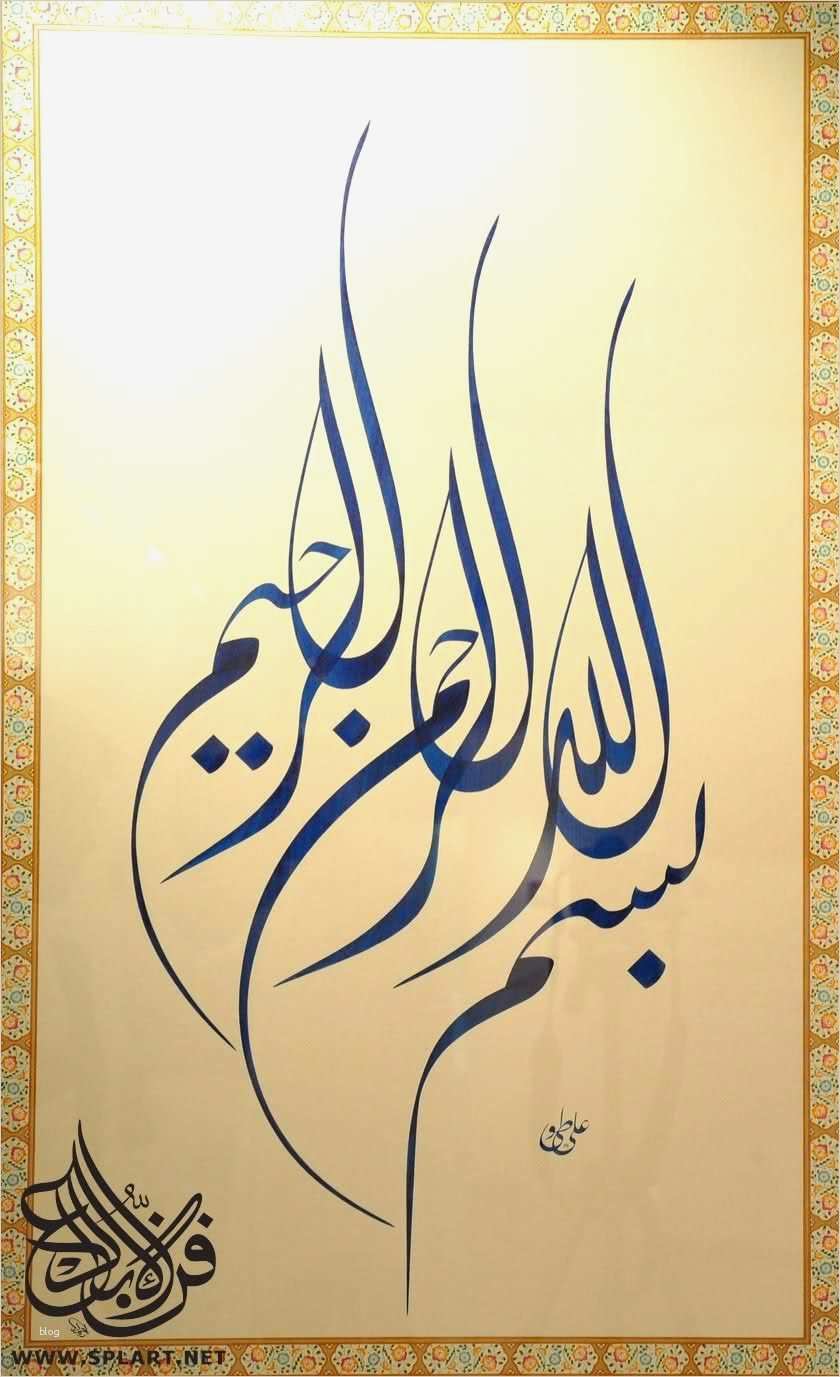 بسم الله الرحمن الرحيم
فن الإبداع
blog
WWW.SPLART.NET